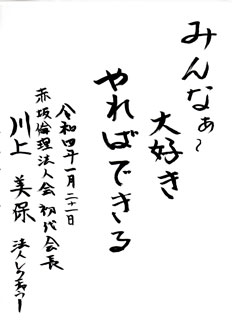 みんなぁ〜
大好き
やればできる
令和四年一月二十一日
赤坂倫理法人会 初代会長
川上 美保
法人レクチャラー